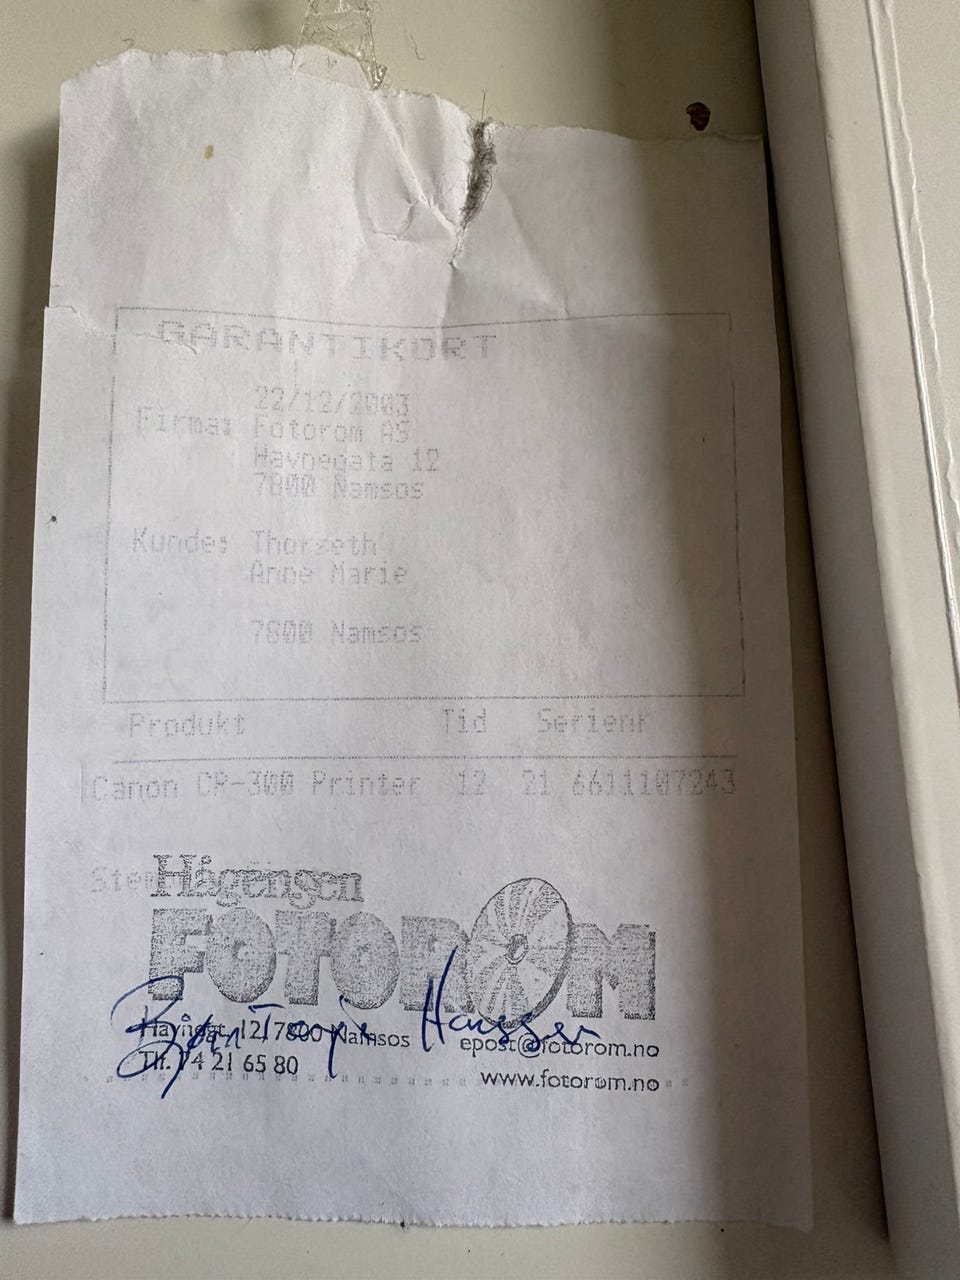 GARANTIKORT
22/12/2003
Firma: Fotorom AS
Havnegata 12
7800 Namsos
Kunde: Thorseth
Anne Marie
7800 Namsos
Produkt Tid Serienr
Canon CP-300 Printer 12 21 6611107243
Hågensen
FOTOROM
Havnegt. 12, 7800 Namsos epost@fotorom.no
Tlf. 74 21 65 80
www.fotorom.no
Hansen